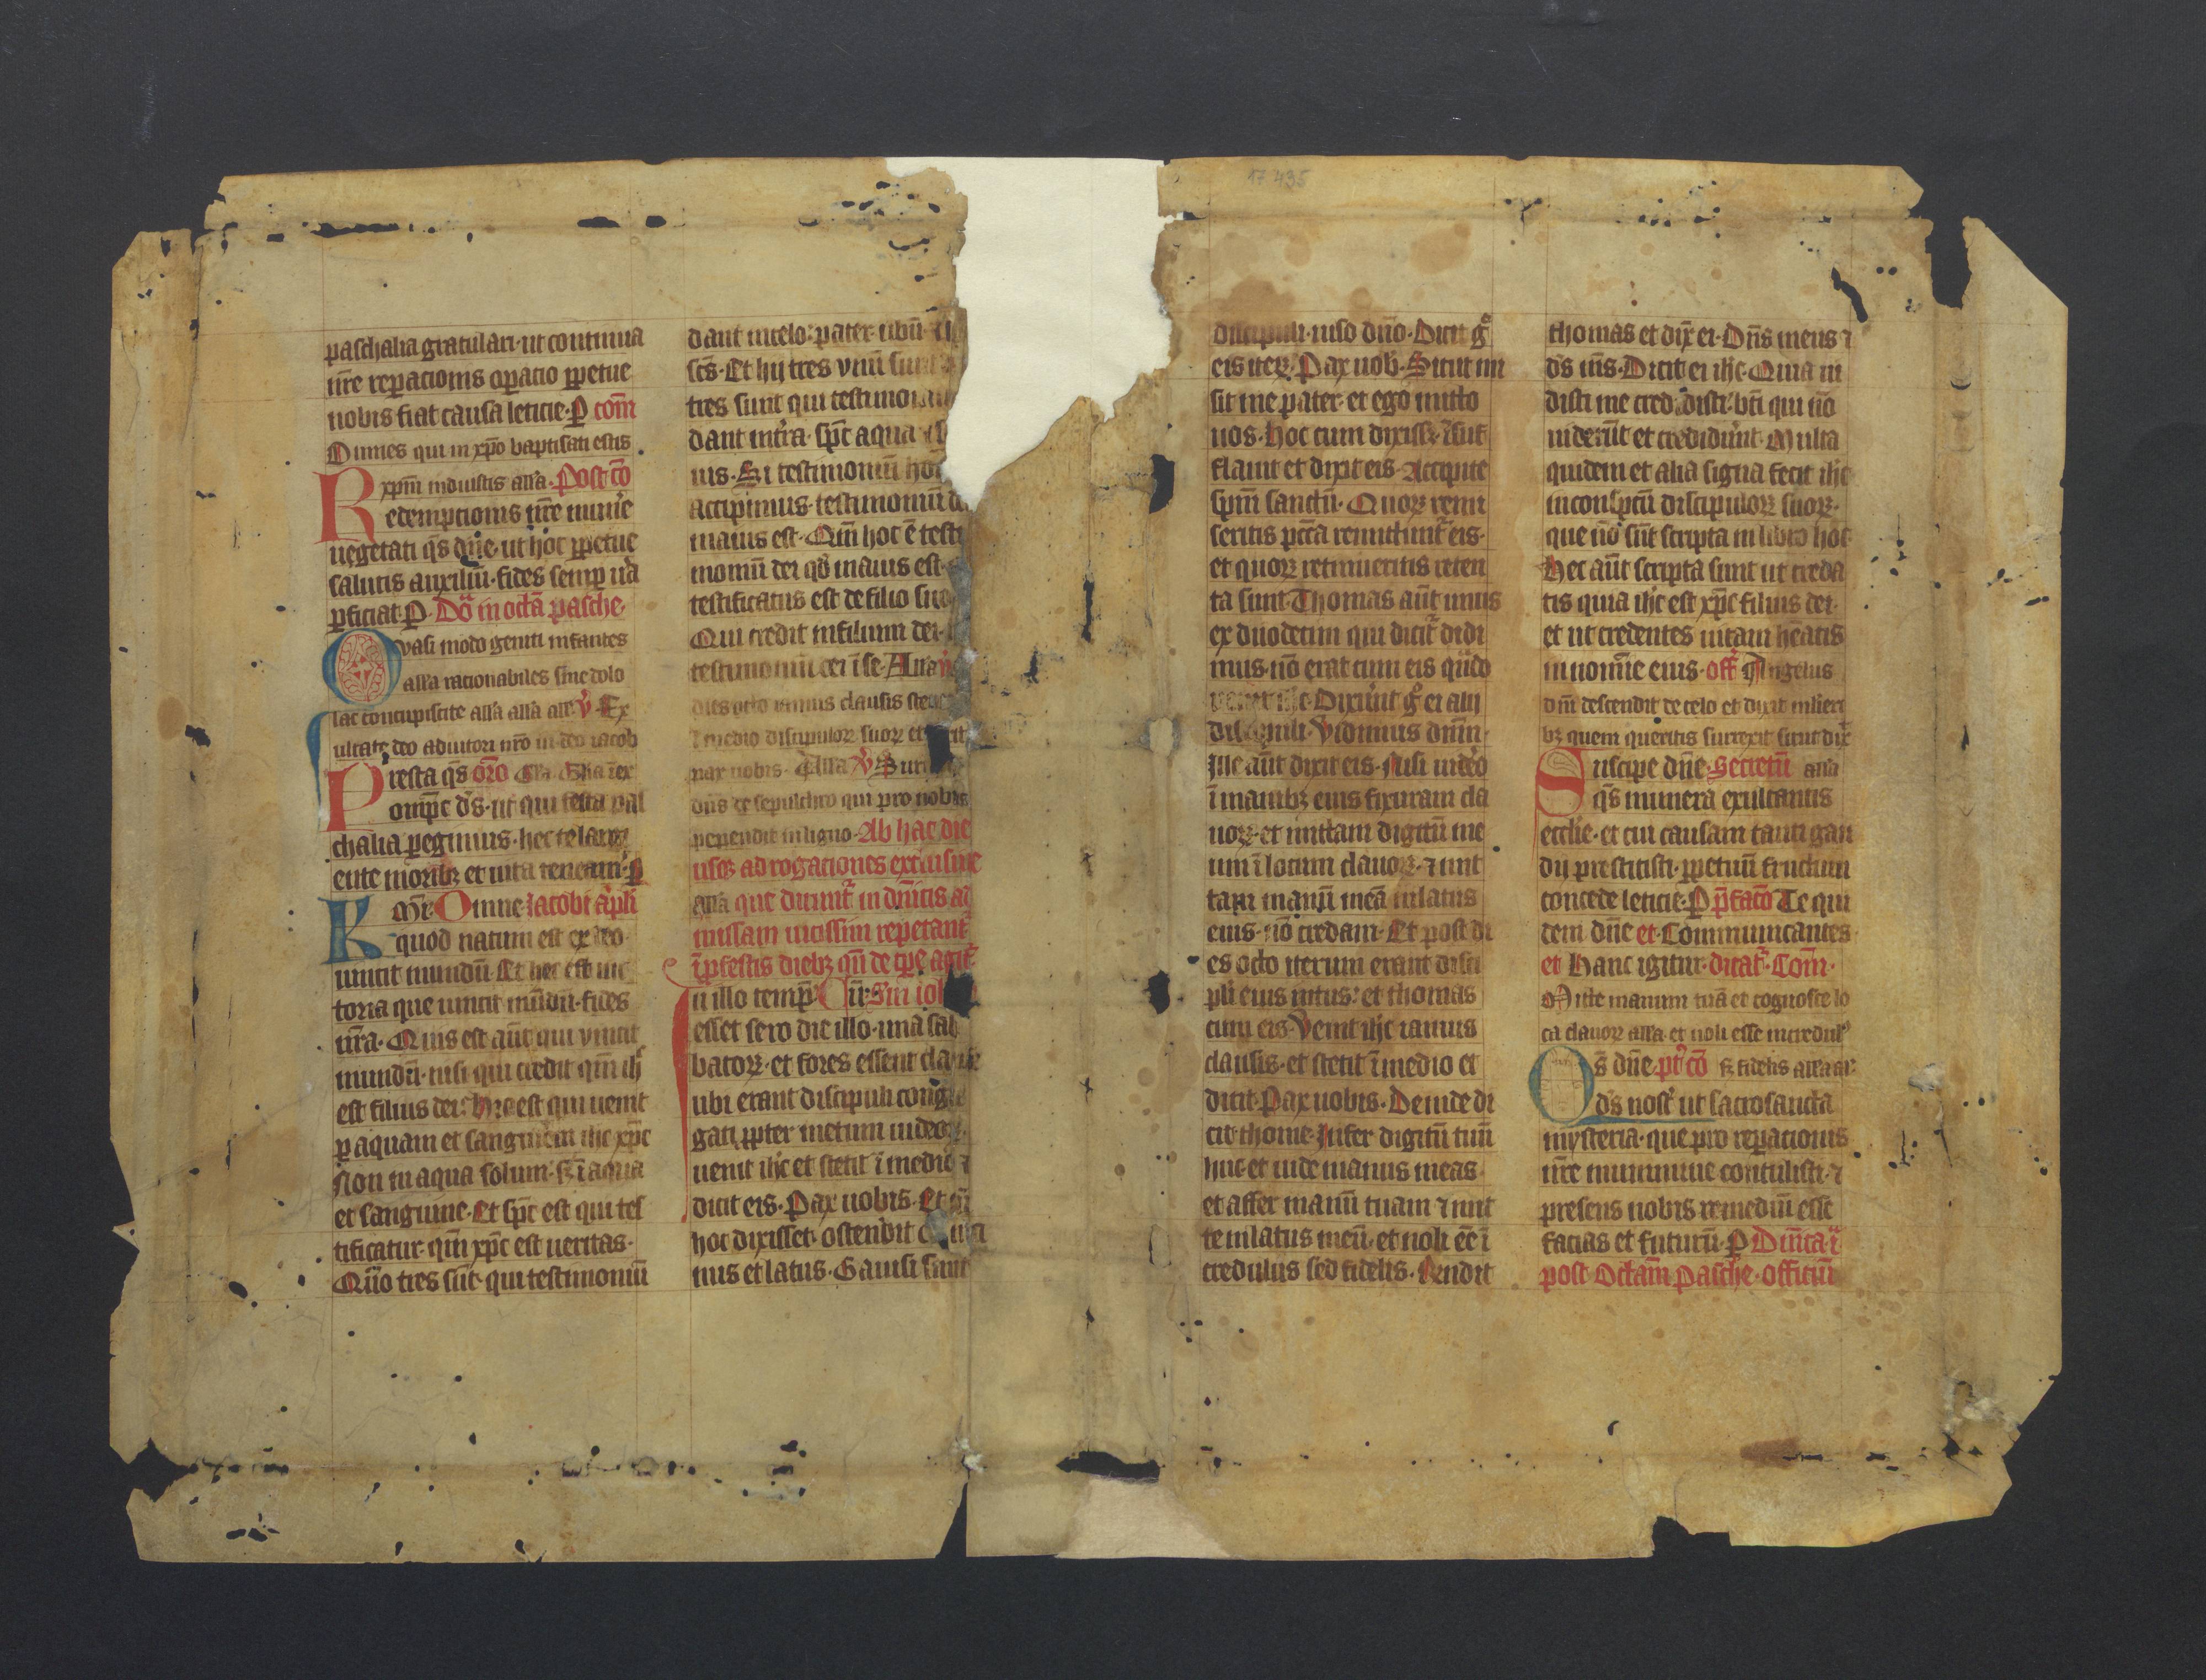 17 435
paschalia gratulari · ut continua
nr̄e reꝑacionis oꝑacio ꝑpetue
nobis fiat causa leticie · P com̄
Omnes qui in xp̄o baptisati estis
xpm̄ induistis all'a · Post co͞
Redempcionis nr̄e mun'e
uegetati qs̄ dn̄e · ut hoc ꝑpetue
salutis auxiliū · fides semꝑ u'a
ꝑficiat · P · Do͞ in octā pasche
Quasi modo geniti infantes
all'a racionabiles sine dolo
lac concupiscite all'a all'a all'e V̄ Ex
ultate deo adiutori nr̄o in deo iacob
Presta qs̄ oro͞
omp̄c ds̄ · ut qui festa pas
chalia ꝑegimus · hec te largi
ente morib; et uita teneam' · P
Kmī · Omne Iacobi ap̄li
quod natum est ex deo
uincit mundū · Et hec est uic
toria que uincit mūdū · fides
nr̄a · Quis est aūt qui vincit
mundū · nisi qui credit qm̄ ih̄c
est filius dei · Hic est qui uenit
ꝑ aquam et sanguinem ih̄c xp̄c
Non in aqua solum · sꝫ ī aqua
et sanguine · Et sp̄c est qui tes
tificatur qm̄ xp̄c est ueritas ·
Qm̄o tres sūt · qui testimoniū
dant in celo · pater · ubū ·
sc̄s · Et hij tres vnū sunt
tres sunt qui testimoni
dant in t'ra · sp̄c aqua
uis · Si testimoniū ho
accipimus · testimoniū d
maius est · Qm̄ hoc ē testi
moniū dei qd̄ maius est ·
testificatus est de filio suo
Qui credit in filium dei ·
testimoniū dei ī se · All'a
dies octo ianuis clausis stetit
ī medio discipuloꝝ suoꝝ et dixit
pax nobis · All'a V̄ Surr
dn̄s de sepulchro qui pro nobis
pependit in ligno · Ab hac die
usqꝫ ad rogaciones exclusiue
all'a que dicunt' in dn̄icis ad
missam uicissim repetant'
ī ꝓfestis dieb; qn̄ de tp̄e agit'
In illo tempr̄ Cū · Sm̄ ioh
esset sero die illo · una sab
batoꝝ · et fores essent clause
ubi erant discipuli congre
gati ꝓpter metum iudeoꝝ ·
uenit ih̄c et stetit ī medio ⁊
dicit eis · Pax uobis · Et cū
hoc dixisset · ostendit
nus et latus · Gauisi sunt
discipuli · uiso dn̄o · Dicit g°
eis iteꝝ · Pax uob · Sicut mi
sit me pater · et ego mitto
uos · hoc cum dixisꝫ · īsuf
flauit et dixit eis · Accipite
spm̄ sanctū · Quoꝝ remi
seritis pcc̄a remittunt' eis ·
et quoꝝ retinueritis reten
ta sunt · Thomas aūt unus
ex duodecim qui dicit' didi
mus · nō erat cum eis qn̄do
uenit ih̄c · Dixer'unt g° ei alij
discipuli · Vidimus dnm̄ ·
Ille aūt dixit eis · Nisi uidero
ī manib; eius fixuram cla
uoꝝ · et mittam digitū me
um ī locum clauoꝝ · ⁊ mit
tam manū meā in latus
eius · nō credam · Et post di
es octo iterum erant disci
pli eius intus · et thomas
cum eis · Venit ih̄c ianuis
clausis · et stetit ī medio et
dicit · Pax uobis · Deinde di
cit thome · Infer digitū tuū
huc · et uide manus meas ·
et affer manū tuam ⁊ mit
te in latus meū · et noli eē ī
credulus sed fidelis · Rn̄dit
thomas et dix̄ ei · Dn̄s meus ⁊
ds̄ ms̄ · Dicit ei ih̄c · Quia ui
disti me cred disti · bti qui nō
uiderūt et crediderūnt · Multa
quidem et alia signa fecit ih̄c
in consp̄tū discipuloꝝ suoꝝ ·
que nō sūt scripta in libro hoc
Hec aūt scripta sunt ut creda
tis quia ih̄c est xp̄c filius dei ·
et ut credentes uitam hēatis
in nom̄ie eius · off̄ Angelus
dn̄i descendit de celo et dixit mulieri
b; quem queritis surrexit sicut dix̄
Suscipe dn̄e · Secretū all'a
qs̄ munera exultantis
ecclie · et cui causam tanti gau
dij prestitisti · ꝑpetuū fructum
concede leticie · P p̄facō Te qui
dem dn̄e et · Communicantes
et Hanc igitur · dicat' · Com̄ ·
Mitte manum tuā et cognosce lo
ca clauoꝝ all'a · et noli esse incredul'
Qs̄ dn̄e · pt' co͞ sꝫ fidelis all'a al'
ds̄ nost' ut sacrosancta
mysteria · que pro reꝑacionis
nr̄e munimine contulisti · ⁊
presens nobis remediū esse
facias et futurū · P Dn̄ica ī
post Octam̄ pasche · officiū